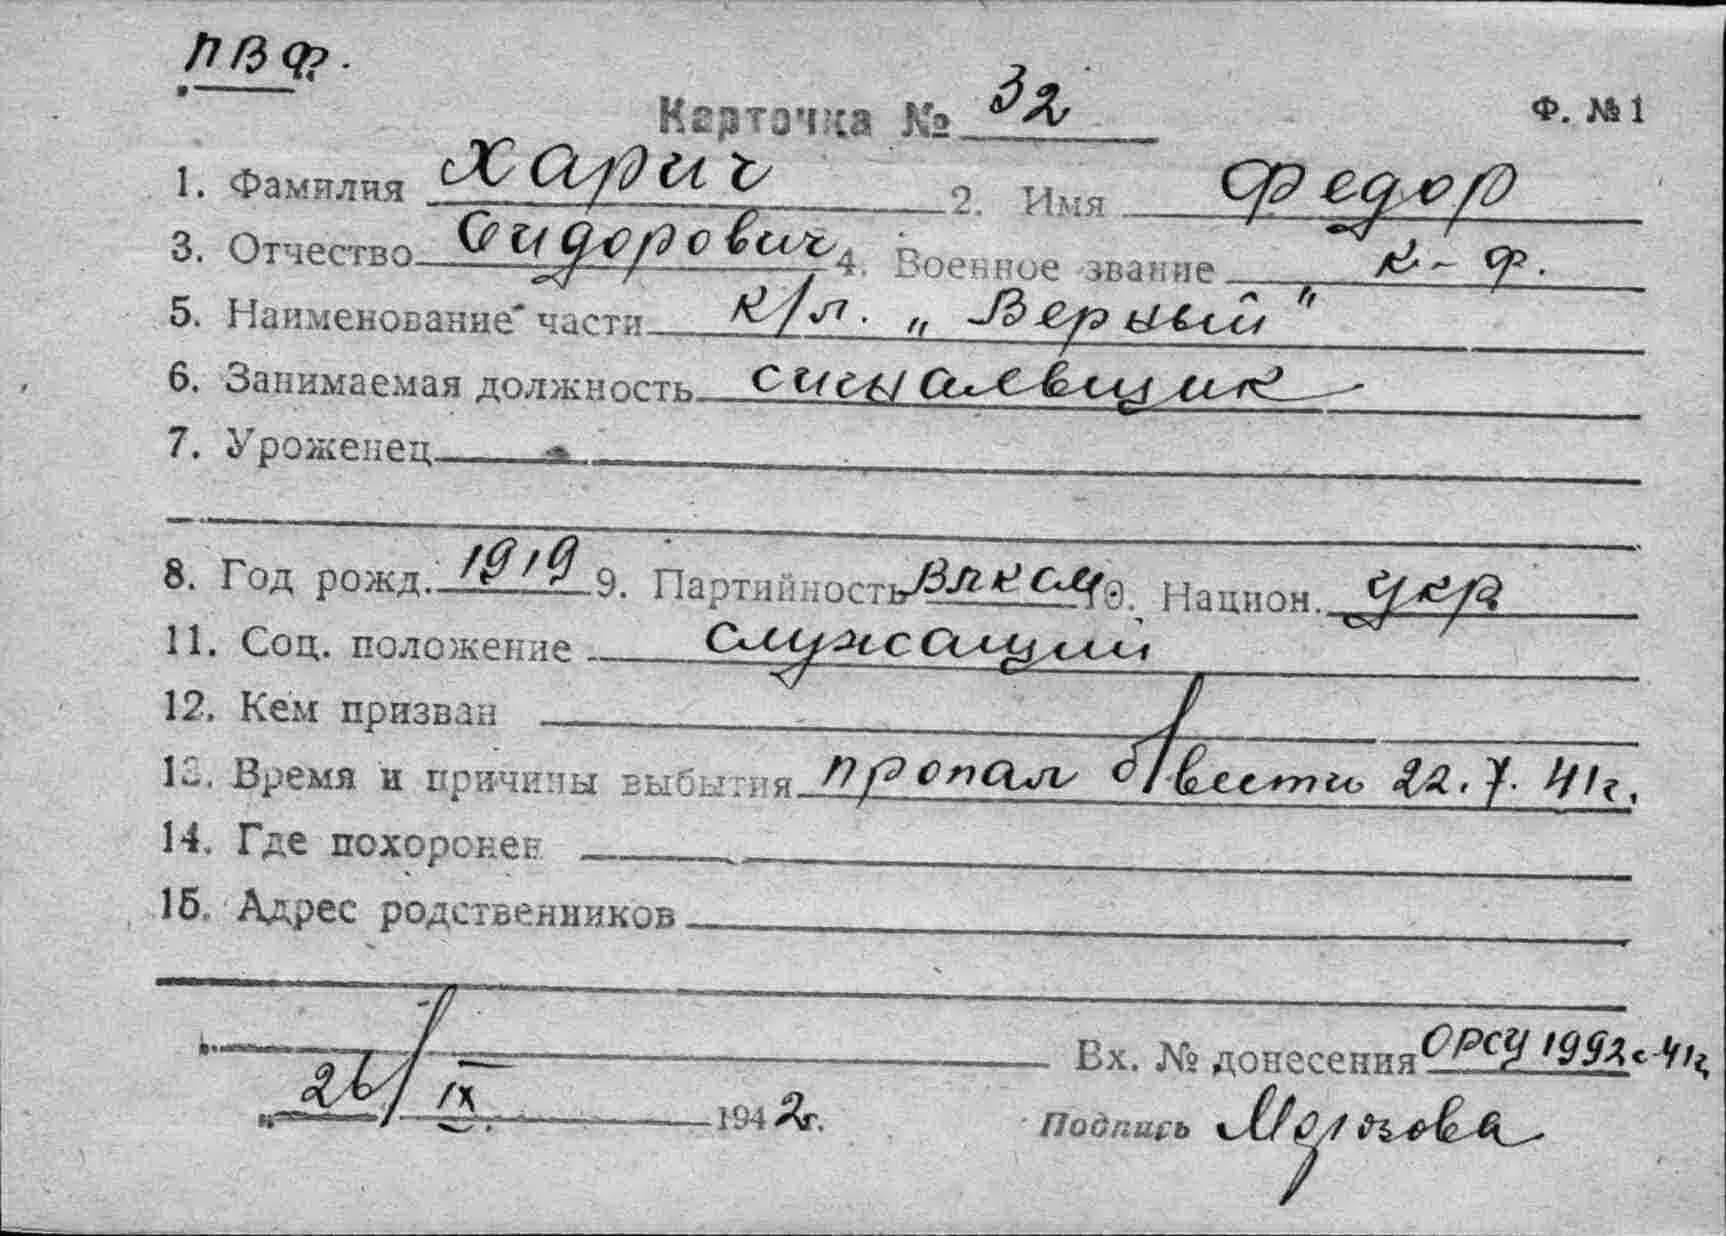 ПВФ.
Карточка № 32 Ф. № 1
1. Фамилия Харич 2. Имя Федор
3. Отчество Сидорович 4. Военное звание к-ф.
5. Наименование части к/л. „Верный"
6. Занимаемая должность сигнальщик
7. Уроженец
8. Год рожд. 1919 9. Партийность ВЛКСМ 10. Национ. укр
11. Соц. положение служащий
12. Кем призван
13. Время и причины выбытия пропал б/вести 22.7.41г.
14. Где похоронен
15. Адрес родственников
Вх. № донесения ОРСУ 1992с-41г
„26/IX 1942г. Подпись Морозова